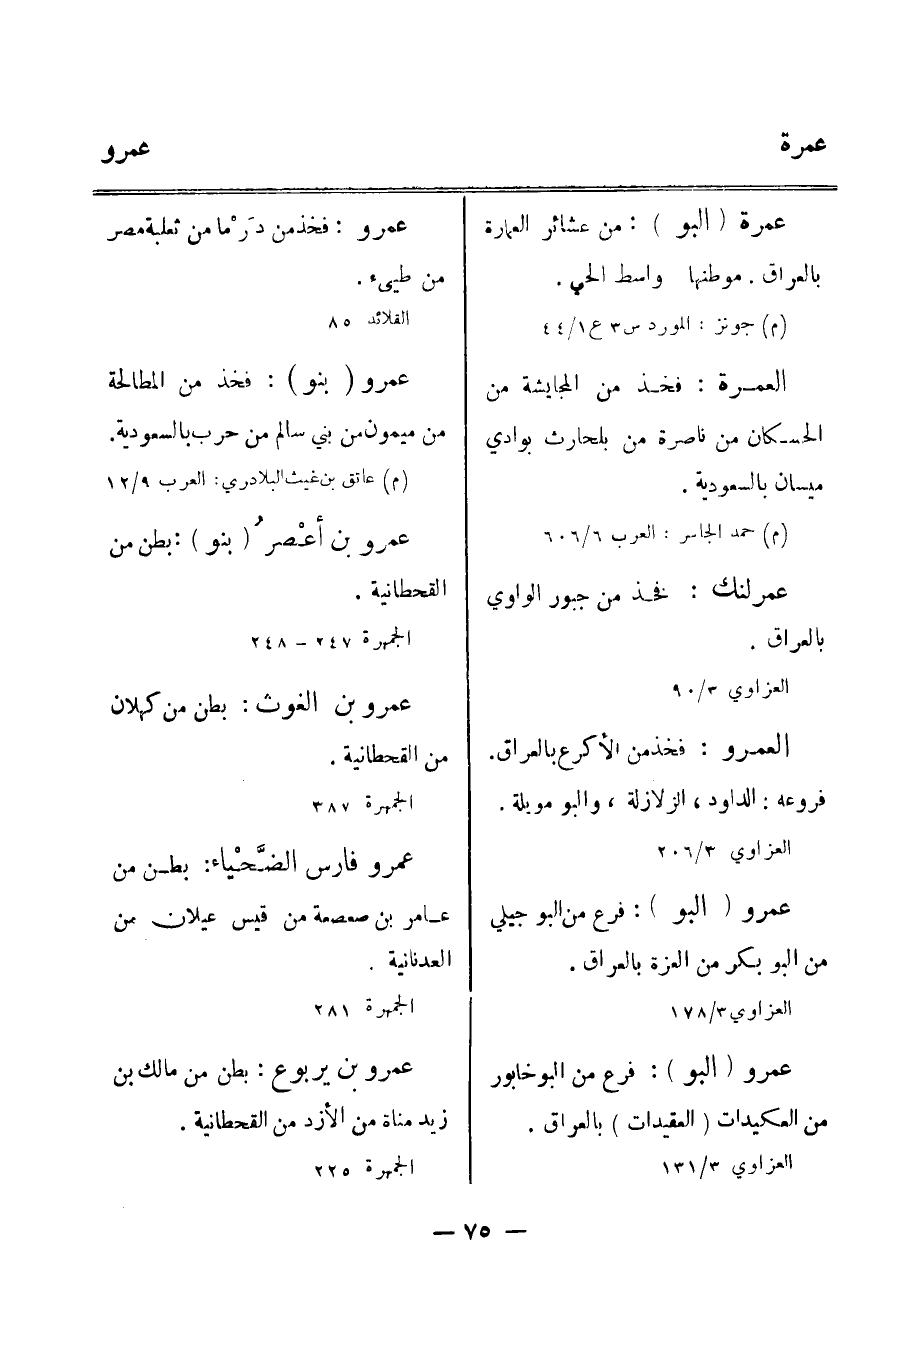 عمرة
عمرو
عمرة ( البو ) : من عشائر العمارة
بالعراق . موطنها واسط الحي .
(م) جونز : المورد س٣ ع١/٤٤
العمـرة : فخـذ من المجايشة من
الحسـكان من ناصرة من بلحارث بوادي
ميسان بالسعودية .
(م) حمد الجاسر : العرب ٦٠٦/٦
عمر لنك : فخـذ من جبور الواوي
بالعراق .
العزاوي ٩٠/٣
العمـرو : فخذمن الأكرع بالعراق.
فروعه : الداود ، الزلازلة ، والبو مويلة .
العزاوي ٢٠٦/٣
عمرو ( البو ) : فرع من البو جيلي
من البو بكر من العزة بالعراق .
العزاوي ١٧٨/٣
عمرو ( البو ) : فرع من البوخابور
من العكيدات ( العقيدات ) بالعراق .
العزاوي ١٣١/٣
عمرو : فخذمن دَرْما من ثعلبةمصر
من طيىء .
القلائد ٨٥
عمرو ( بنو ) : فخذ من المطالحة
من ميمون من بني سالم من حرب بالسعودية.
(م) عاتق بن غيث البلادري: العرب ١٢/٩
عمرو بن أعْصرُ ( بنو ) : بطن من
القحطانية .
الجمهرة ٢٤٧ – ٢٤٨
عمرو بن الغوث : بطن من كهلان
من القحطانية .
الجمهرة ٣٨٧
عمرو فارس الضَّحْياء: بطـن من
عـامر بن صعصعة من قيس عيلان من
العدنانية .
الجمهرة ٢٨١
عمرو بن يربوع : بطن من مالك بن
زيد مناة من الأزد من القحطانية .
الجمهرة ٢٢٥
— ٧٥ —